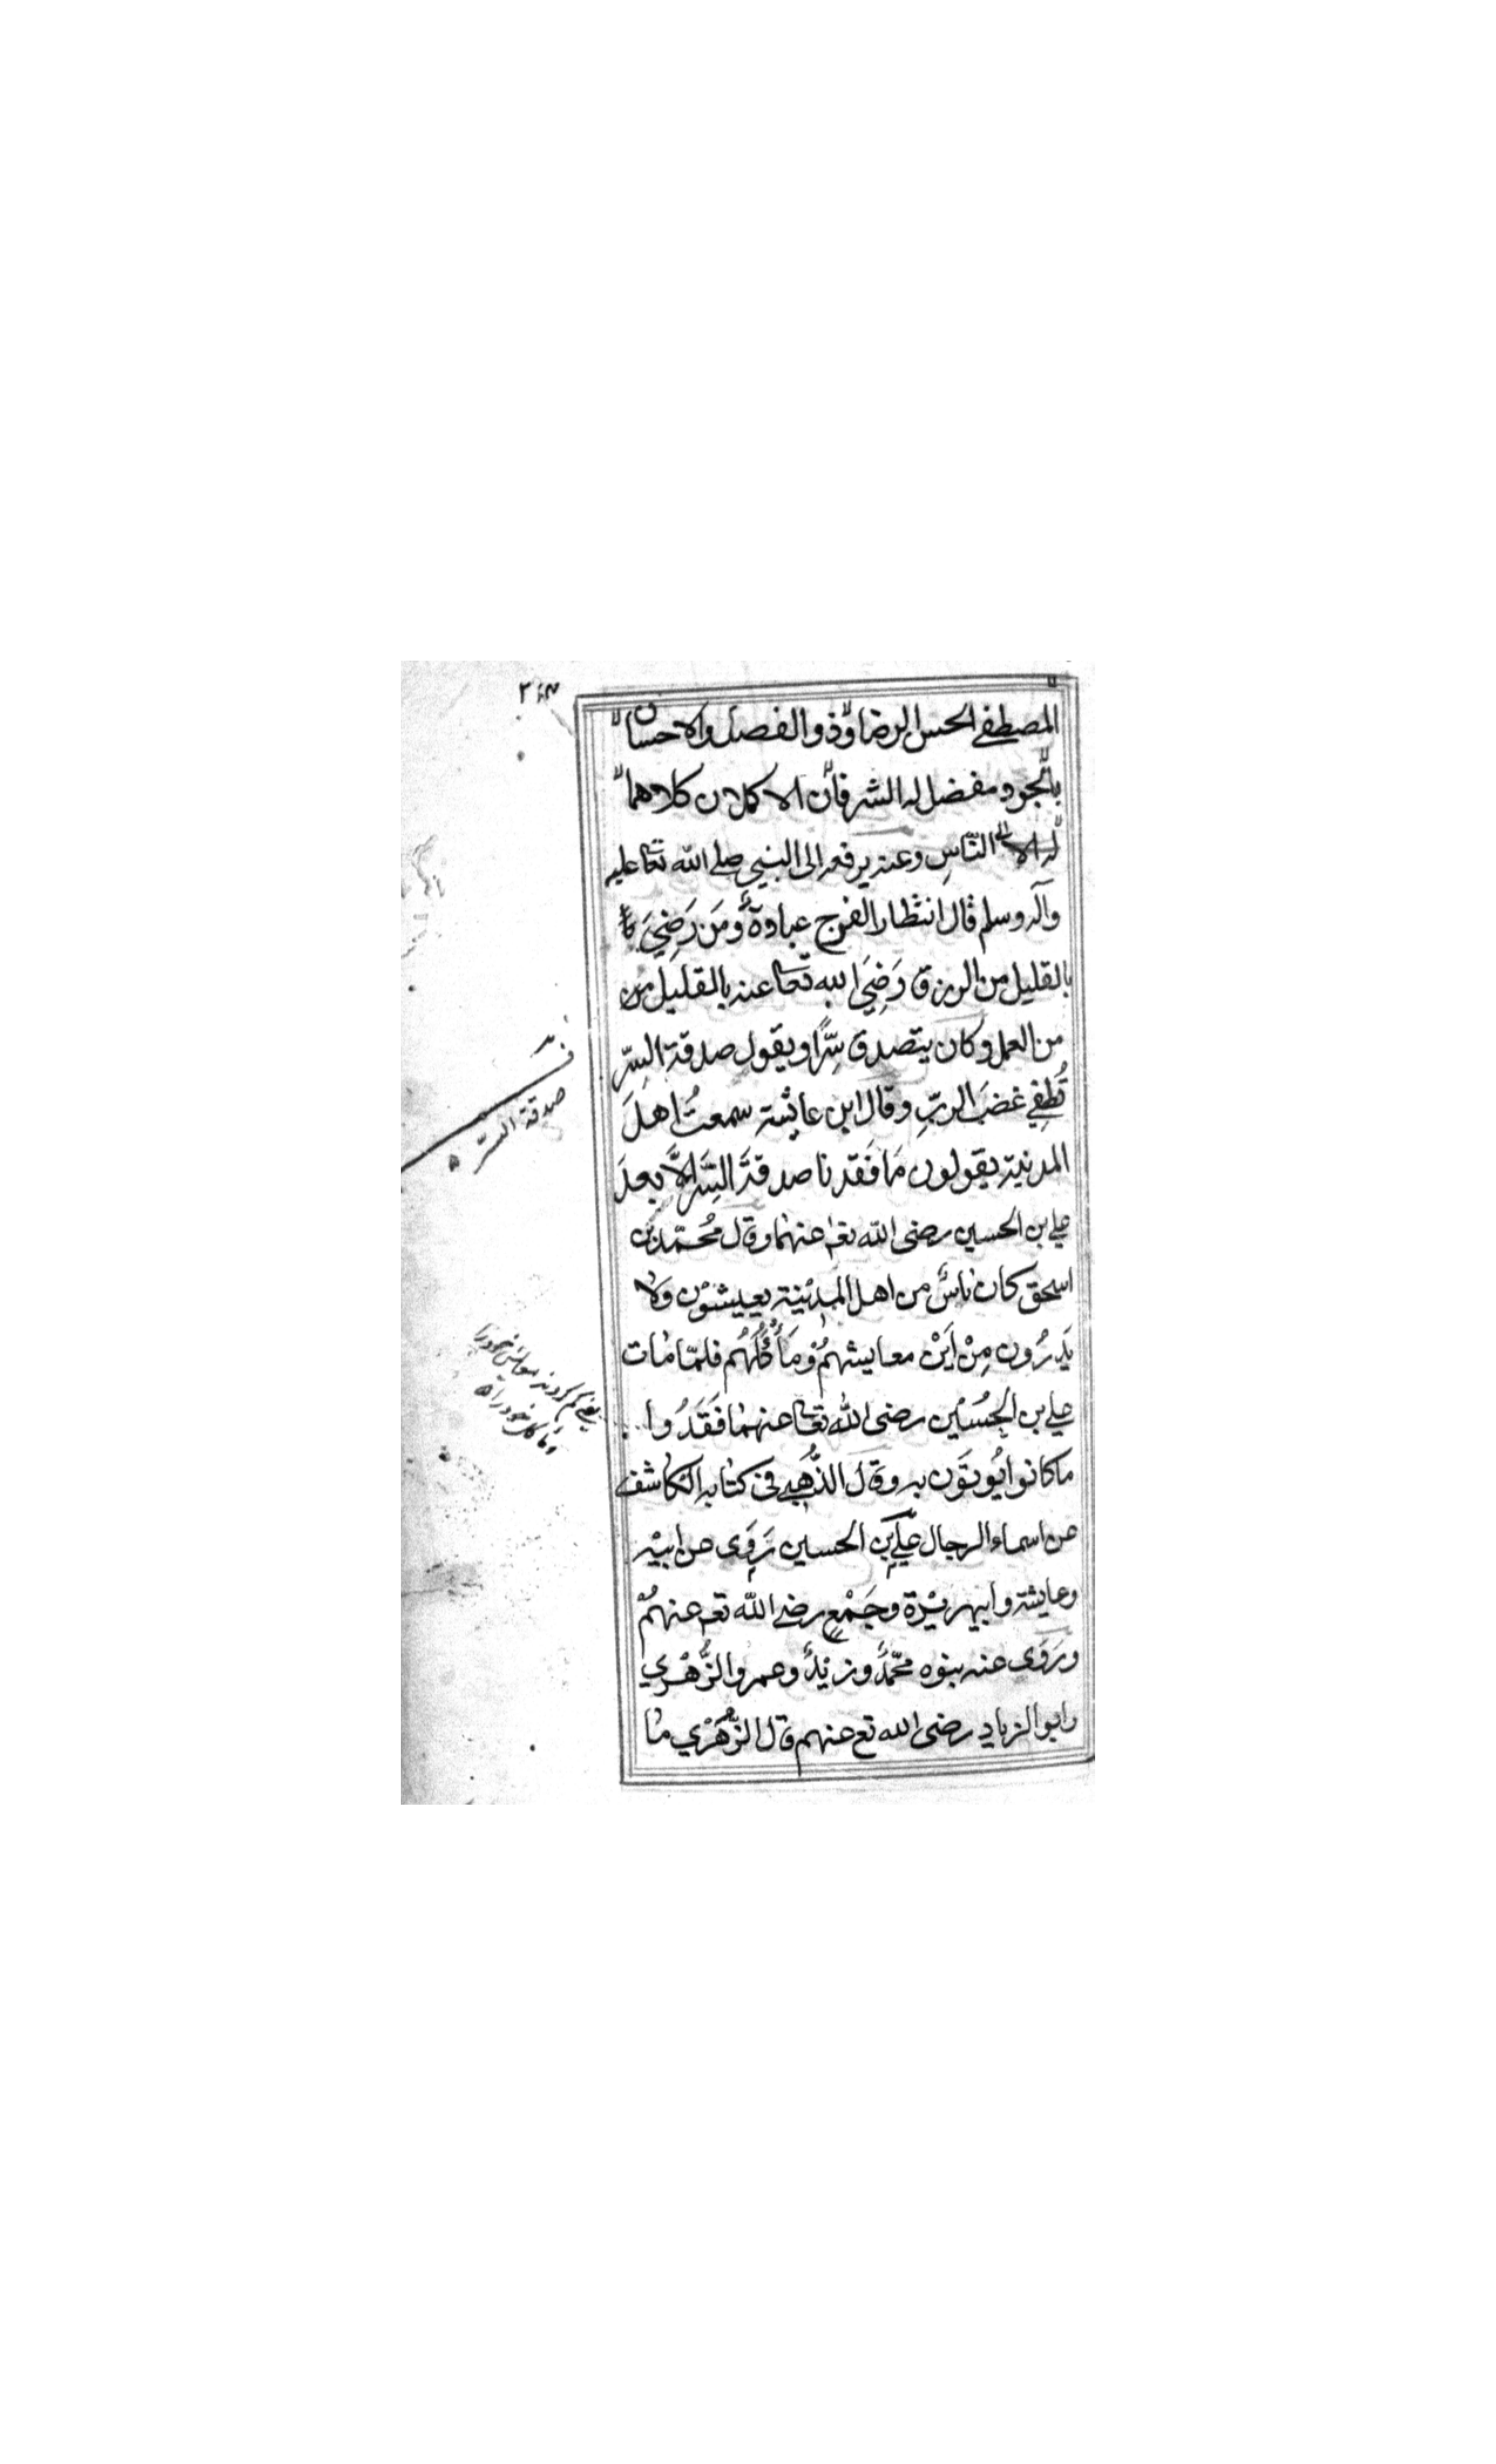 المصطفى الحسن الرضا وذو الفضل والاحسان
بالجود مفضل له الشرفان الاكملان كلاهما
الى النّاسِ وعنه يرفعه الى النبي صلى الله تعا عليه
وآله وسلم قال انتظار الفرج عبادةٌ ومَن رَضِيَ
بالقليل من الرزق رَضِيَ الله تعا عنه بالقليل من
من العمل وكان يتصدق سِرًّا ويقول صدقة السِرّ
تُطفِي غضبَ الربِّ وقال ابن عايشة سمعتُ اهلَ
المدينة يقولون مَا فَقدنا صدقةَ السِّرّ الاَّ بعدَ
علي بن الحسين رضى الله تعم عنهما وقال مُحمّد بن
اسحق كان ناسٌ من اهل المدينة يعيشون ولا
يَدرُون مِنْ اَيْنَ معايشهُمْ ومَأْكُلُهُم فلمّا مات
علي بن الحُسَيْن رضى الله تعا عنهما فَقَدُوا
ما كانوا يُوتَون به وقال الذَّهَبي في كتابه الكاشف
عن اسماء الرجال علي بن الحسين رَوَى عن ابيه
وعايشة وابي هريرة وجَمْعٍ رضي الله تعم عنهُمْ
ورَوَى عنه بنوه محمّدٌ وزيدٌ وعمر والزُّهْري
وابو الزياد رضى الله تع عنهم قال الزُّهْرَي ما
صدقة السرّ